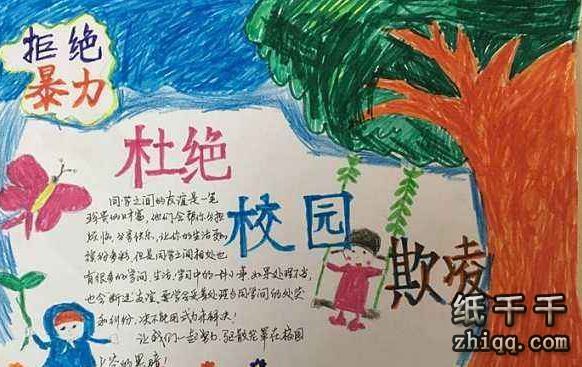 拒绝
暴力
杜绝
校园
欺凌
同学之间的友谊是一笔
珍贵的财富,他们会帮你分担
烦恼,分享快乐,让你的生活更加
缤纷多彩,但是同学之间相处也
有很多的学问,生活,学习中的一件小事,如果处理不当,
也会断送友谊,要学会妥善处理与同学间的
和纠纷,决不能用武力来解决!
让我们一起努力,驱散笼罩在校园
上空的黑暗!
纸千千
zhiqq.com